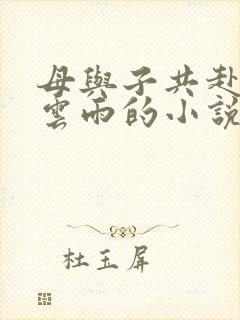 母與子共赴
雲雨的小說
杜玉屏